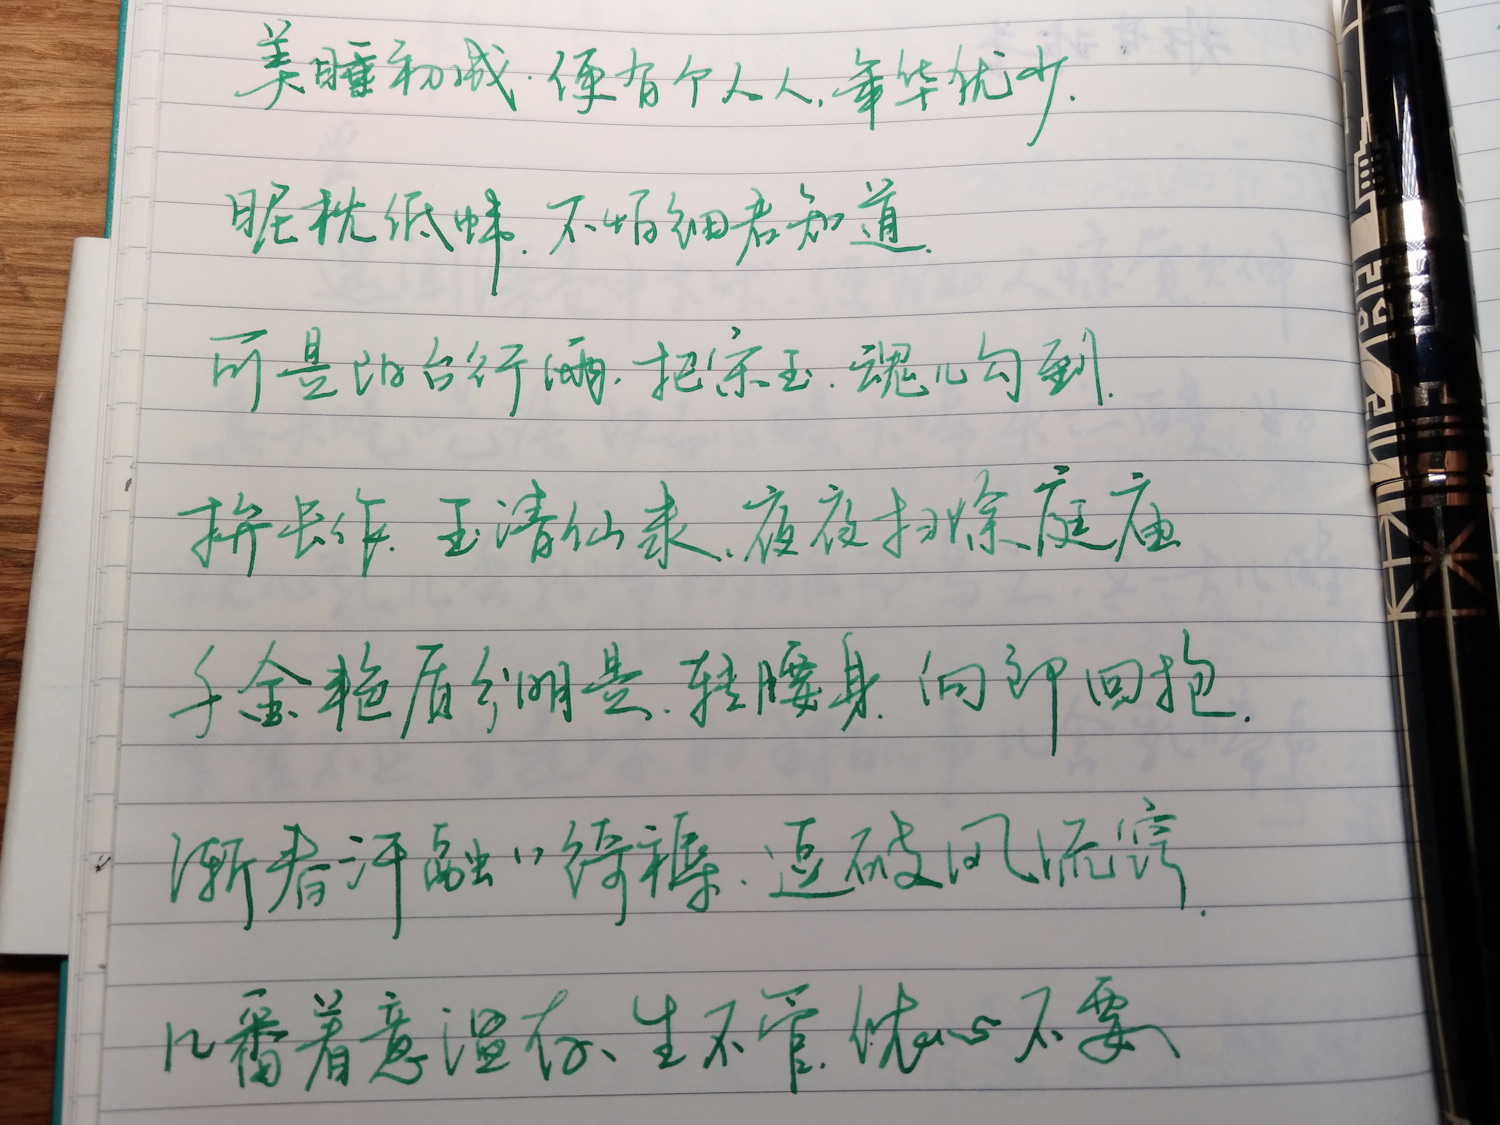 美睡初成.便有个人人,年华优少.
昵枕低帏.不怕细君知道.
可是阳台行雨.把宋玉.魂儿勾到.
拚长作.玉清仙隶.夜夜扫除庭庙
千金艳质分明是.转腰身.向郎回抱.
渐看汗融 绮褥.逗破风流窍.
几番着意温存、生不管.优心不要